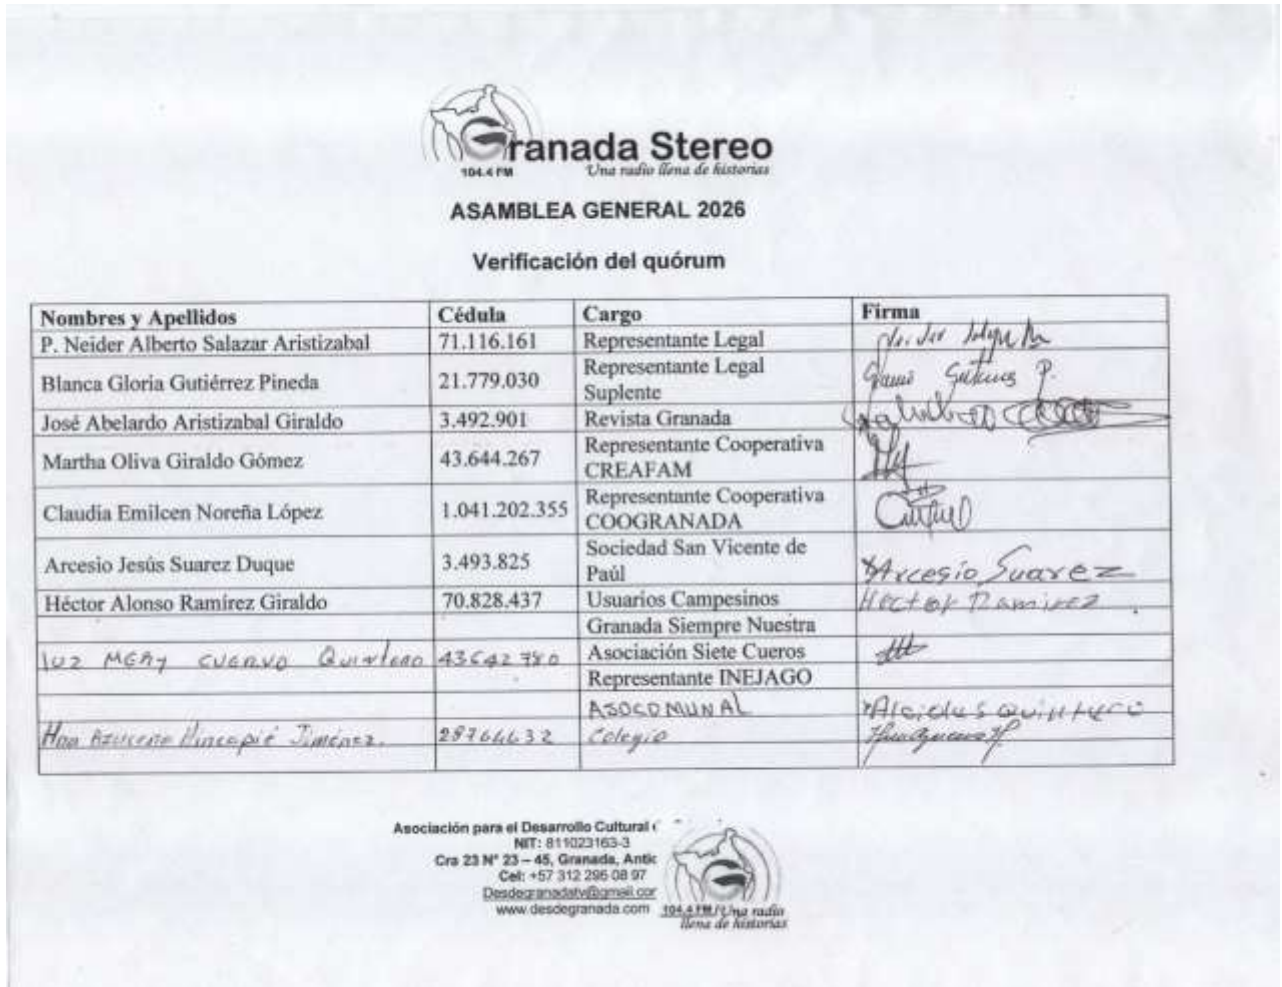 Granada Stereo
104.4 FM Una radio llena de historias
ASAMBLEA GENERAL 2026
Verificación del quórum
Nombres y Apellidos Cédula Cargo Firma
P. Neider Alberto Salazar Aristizabal 71.116.161 Representante Legal
Blanca Gloria Gutiérrez Pineda 21.779.030 Representante Legal Suplente
José Abelardo Aristizabal Giraldo 3.492.901 Revista Granada
Martha Oliva Giraldo Gómez 43.644.267 Representante Cooperativa CREAFAM
Claudia Emilcen Noreña López 1.041.202.355 Representante Cooperativa COOGRANADA
Arcesio Jesús Suarez Duque 3.493.825 Sociedad San Vicente de Paúl Arcesio Suarez
Héctor Alonso Ramírez Giraldo 70.828.437 Usuarios Campesinos Hector Ramirez
Granada Siempre Nuestra
Luz MERY CUERVO Quintero 43642780 Asociación Siete Cueros
Representante INEJAGO
ASOCOMUNAL Alcides Quintero
Hna Azucena Hincapié Jiménez. Colegio
Asociación para el Desarrollo Cultural
NIT: 811023163-3
Cra 23 N° 23 – 45, Granada, Antic
Cel: +57 312 295 08 97
Desdegranadatv@gmail.cor
www.desdegranada.com
104.4 FM / Una radio
llena de historias